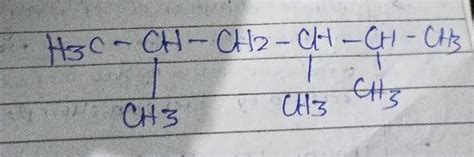 H3C - CH - CH2 - CH - CH - CH3
CH3 CH3 CH3